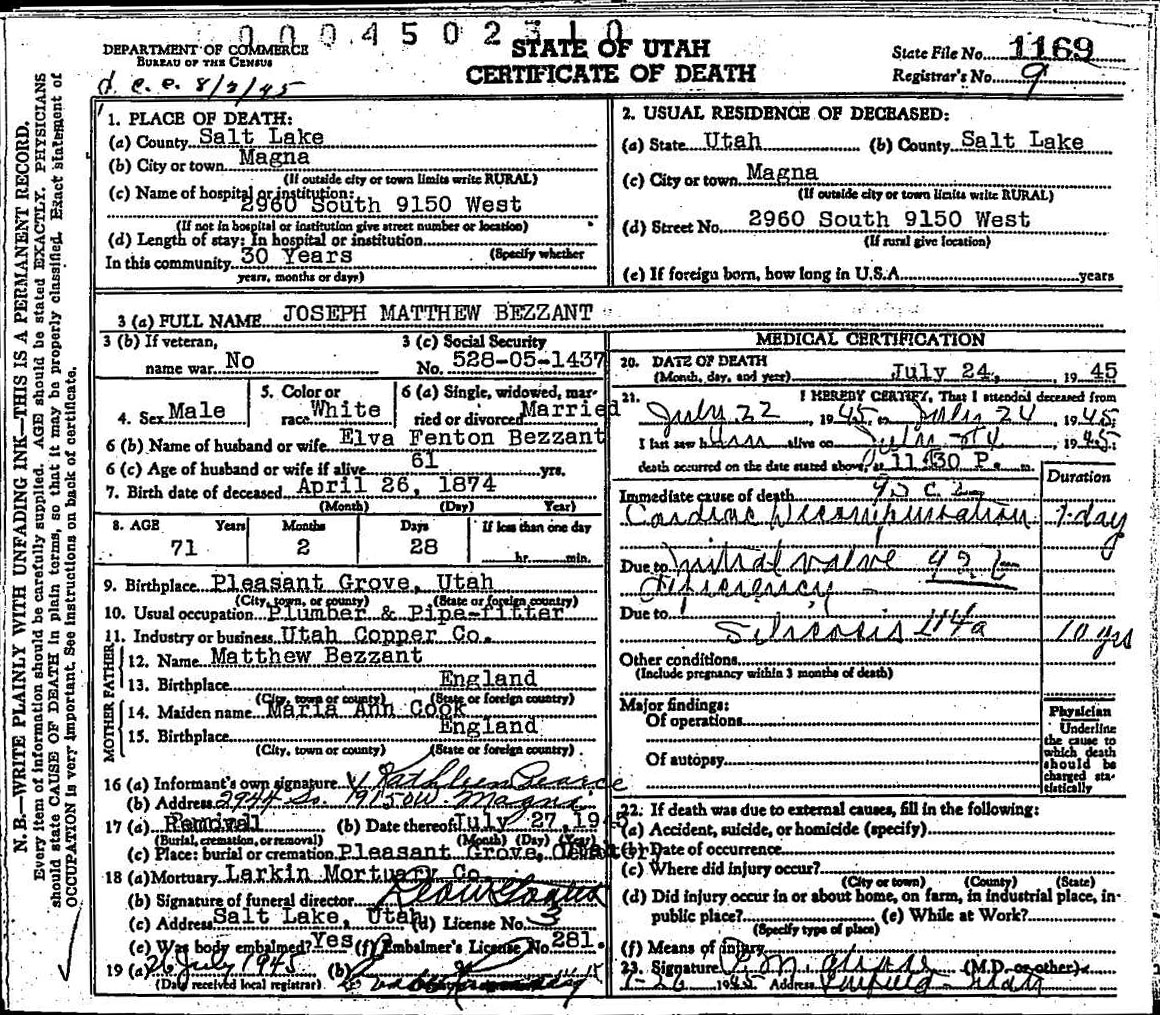 0004502310
DEPARTMENT OF COMMERCE
BUREAU OF THE CENSUS
STATE OF UTAH
CERTIFICATE OF DEATH
State File No. 1169
Registrar's No. 9
8/3/45
N. B.—WRITE PLAINLY WITH UNFADING INK—THIS IS A PERMANENT RECORD.
Every item of information should be carefully supplied. AGE should be stated EXACTLY. PHYSICIANS
should state CAUSE OF DEATH in plain terms, so that it may be properly classified. Exact statement of
OCCUPATION is very important. See instructions on back of certificate.
1. PLACE OF DEATH:
(a) County Salt Lake
(b) City or town Magna
(If outside city or town limits write RURAL)
(c) Name of hospital or institution:
2960 South 9150 West
(If not in hospital or institution give street number or location)
(d) Length of stay: In hospital or institution
In this community 30 Years (Specify whether
years, months or days)
2. USUAL RESIDENCE OF DECEASED:
(a) State Utah (b) County Salt Lake
(c) City or town Magna
(If outside city or town limits write RURAL)
(d) Street No. 2960 South 9150 West
(If rural give location)
(e) If foreign born, how long in U.S.A. years
3 (a) FULL NAME JOSEPH MATTHEW BEZZANT
3 (b) If veteran,
name war No
3 (c) Social Security
No. 528-05-1437
4. Sex Male
5. Color or
race White
6 (a) Single, widowed, mar-
ried or divorced Married
6 (b) Name of husband or wife Elva Fenton Bezzant
6 (c) Age of husband or wife if alive 61 yrs.
7. Birth date of deceased April 26, 1874
(Month) (Day) Year)
8. AGE Years Months Days If less than one day
71 2 28 hr. min.
9. Birthplace Pleasant Grove, Utah
(City, town, or county) (State or foreign country)
10. Usual occupation Plumber & Pipe-fitter
11. Industry or business Utah Copper Co.
FATHER
12. Name Matthew Bezzant
13. Birthplace England
(City, town or county) (State or foreign country)
MOTHER
14. Maiden name Maria Ann Cook
15. Birthplace England
(City, town or county) (State or foreign country)
16 (a) Informant's own signature Kathleen Pearce
(b) Address 2944 So. 9150 W. Magna
17 (a) Removal (b) Date thereof July 27, 1945
(Burial, cremation, or removal) (Month) (Day) (Year)
(c) Place: burial or cremation Pleasant Grove, Cemetery
18 (a) Mortuary Larkin Mortuary Co.
(b) Signature of funeral director
(c) Address Salt Lake, Utah (d) License No. 3
(e) Was body embalmed? Yes (f) Embalmer's License No. 281.
19 (a) 26 July 1945 (b)
(Date received local registrar)
MEDICAL CERTIFICATION
20. DATE OF DEATH
(Month, day, and year) July 24, 1945
21. I HEREBY CERTIFY, That I attended deceased from
July 22, 1945, to July 24, 1945.
I last saw him alive on July 24, 1945;
death occurred on the date stated above, at 11:30 P. m.
Duration
Immediate cause of death
Cardiac Decompensation 1-day
Due to Mitral valve
deficiency
Due to
Silicosis 114a 10 yrs
Other conditions
(Include pregnancy within 3 months of death)
Major findings:
Of operations
Of autopsy
Physician
Underline
the cause to
which death
should be
charged sta-
tistically
22. If death was due to external causes, fill in the following:
(a) Accident, suicide, or homicide (specify)
(b) Date of occurrence
(c) Where did injury occur?
(City or town) (County) (State)
(d) Did injury occur in or about home, on farm, in industrial place, in
public place? (e) While at Work?
(Specify type of place)
(f) Means of injury
23. Signature (M.D. or other)
7-26 1945 Address Garfield Utah